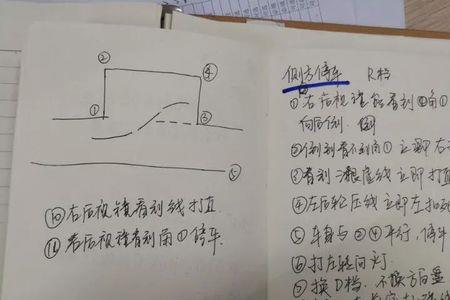 ② ④
① ③
⑤
⑩右后视镜看到线打直
⑪ 右后视镜看到角①停车.
侧方停车 R档
①右后视镜能看到②角①
向后倒.
②倒到看不到角① 立即右
③看到 立即打
④左后轮压线立即左打
⑤ 车身与②④平行,停车
⑥打左转向灯.
⑦换D档. 不换方向